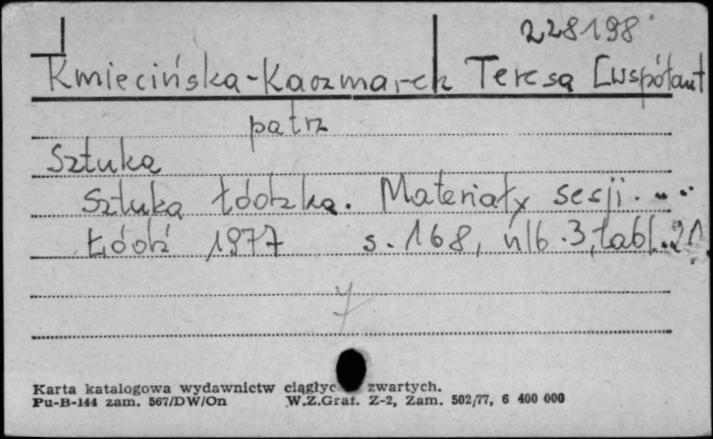 228198
Kmiecińska-Kaczmarek Teresa [współaut
patrz
Sztuka
Sztuka Łódzka. Materiały sesji...
Łódź 1977 s. 168, nlb. 3, tabl. 21.
Karta katalogowa wydawnictw ciągłyc zwartych.
Pu-B-144 zam. 567/DW/On W.Z.Graf. Z-2, Zam. 502/77, 6 400 000